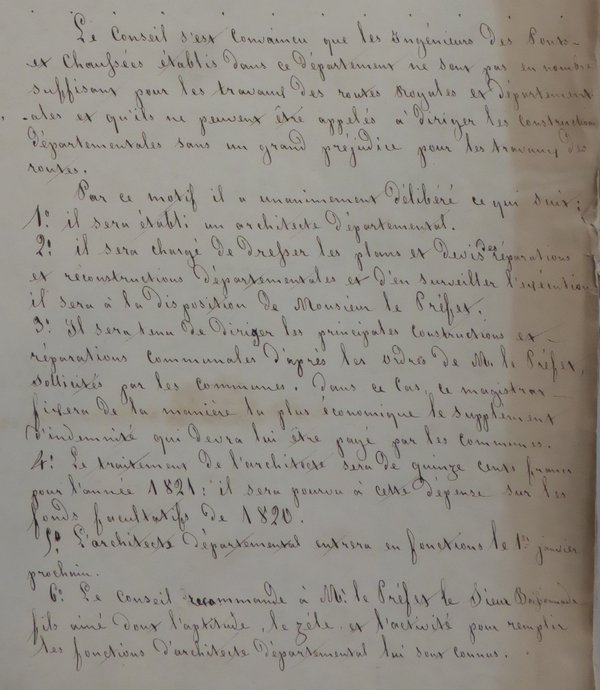 Le Conseil s'est convaincu que les Ingénieurs des Ponts-
et Chaussées établis dans ce Département ne sont pas en nombre
suffisant pour les travaux des routes Royales et département
-ales et qu'ils ne peuvent être appelés à diriger les constructions
départementales sans un grand préjudice pour les travaux des
routes.
Par ce motif il a unanimement délibéré ce qui suit:
1º il sera établi un architecte Départemental.
2º il sera chargé de dresser les plans et devis des réparations
et réconstructions départementales et d'en surveiller l'exécution
il sera à la disposition de Monsieur le Préfet.
3º Il sera tenu de diriger les principales constructions et
réparations communales d'après les ordres de M. le Préfet,
sollicités par les communes. dans ce Cas, ce magistrat
fixera de la manière la plus économique le supplément
d'indemnité qui devra lui être payé par les communes.
4º Le traitement de l'architecte sera de quinze cents francs
pour l'année 1821: il sera pourvu à cette dépense sur les
fonds facultatifs de 1820.
5º L'architecte départemental entrera en fonctions le 1er janvier
prochain.
6º Le Conseil recommande à Mr. le Préfet le Sieur
fils ainé dont l'aptitude, le zéle et l'activité pour remplir
les fonctions d'architecte Départemental lui sont connus.